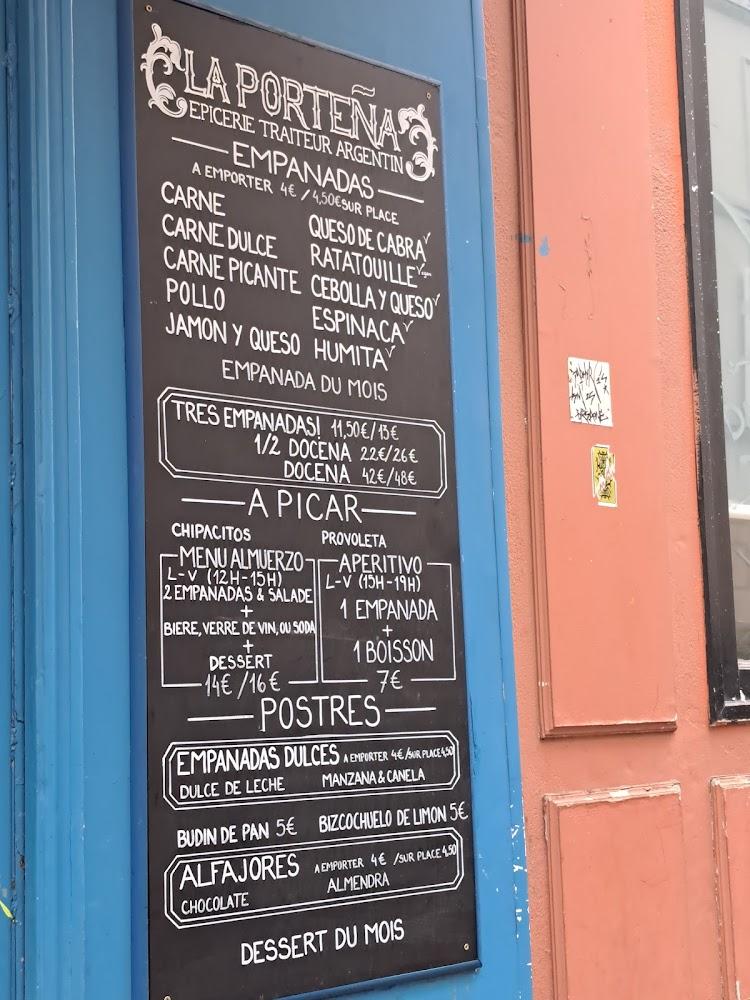 LA PORTEÑA
EPICERIE TRAITEUR ARGENTIN
EMPANADAS
A EMPORTER 4€ / 4,50€ SUR PLACE
CARNE
CARNE DULCE
CARNE PICANTE
POLLO
JAMON Y QUESO
QUESO DE CABRA
RATATOUILLE
CEBOLLA Y QUESO
ESPINACA
HUMITA
EMPANADA DU MOIS
TRES EMPANADAS! 11,50€/13€
1/2 DOCENA 22€/26€
DOCENA 42€/48€
A PICAR
CHIPACITOS PROVOLETA
MENU ALMUERZO
L-V (12H-15H)
2 EMPANADAS & SALADE
+
BIERE, VERRE DE VIN, OU SODA
+
DESSERT
14€/16€
APERITIVO
L-V (15H-19H)
1 EMPANADA
+
1 BOISSON
7€
POSTRES
EMPANADAS DULCES A EMPORTER 4€/SUR PLACE 4,50
DULCE DE LECHE MANZANA & CANELA
BUDIN DE PAN 5€ BIZCOCHUELO DE LIMON 5€
ALFAJORES A EMPORTER 4€ /SUR PLACE 4,50
CHOCOLATE ALMENDRA
DESSERT DU MOIS